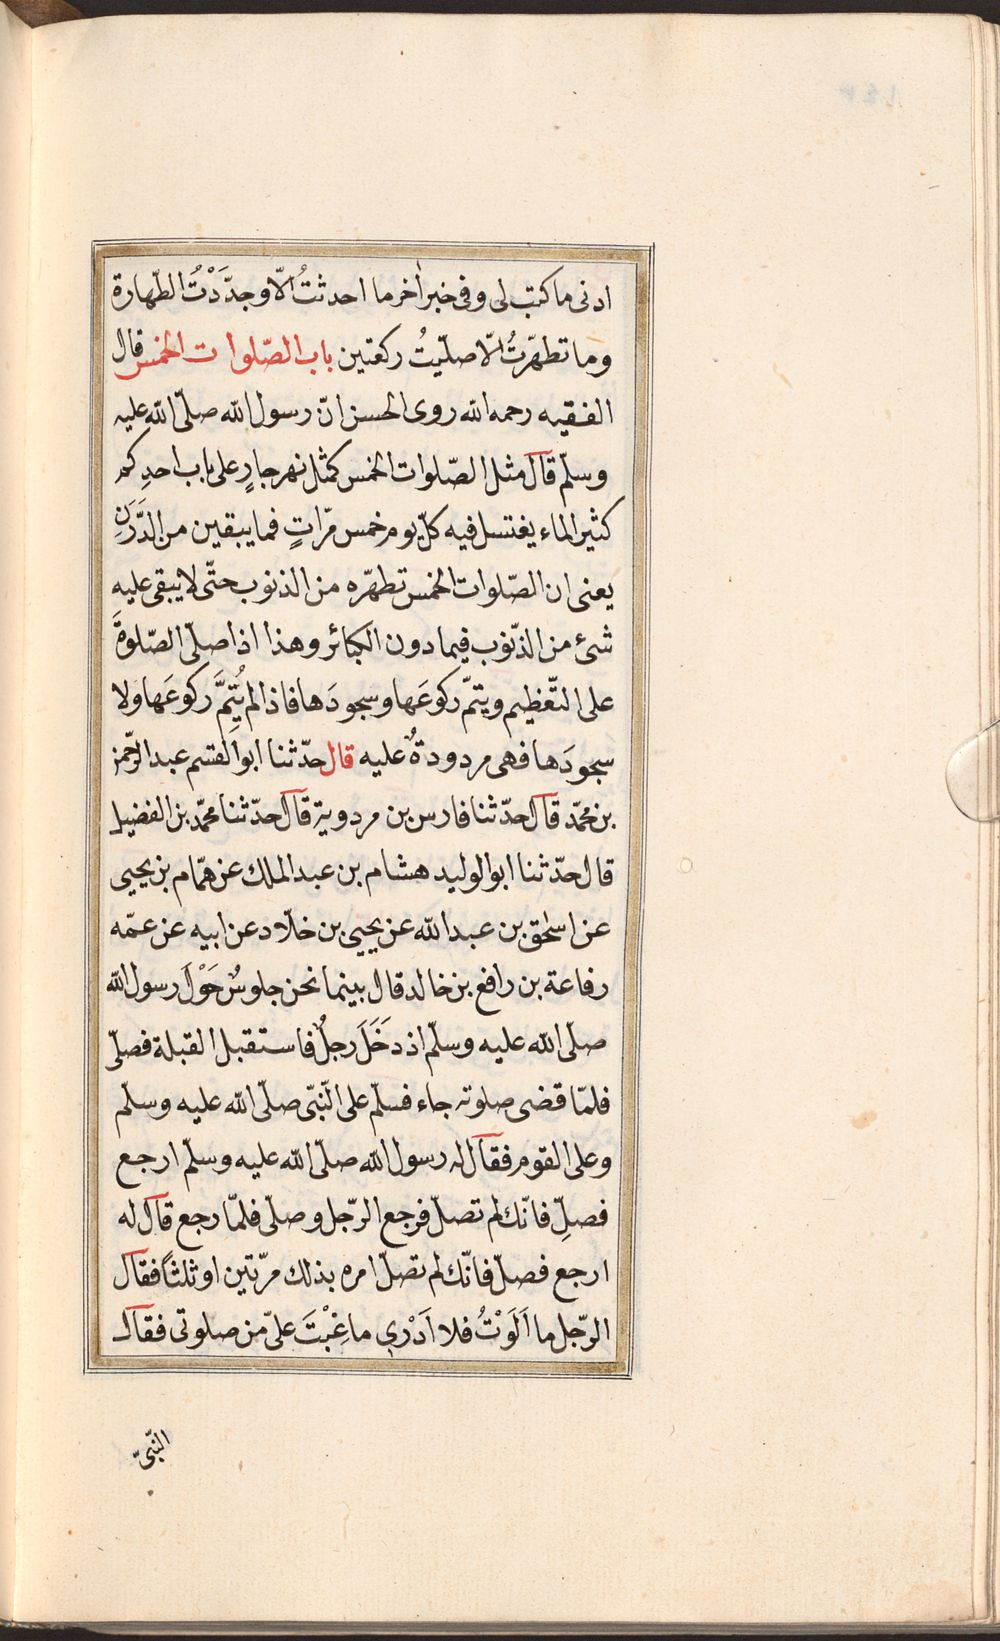 ادنى ما كتب لى وفى خبر اٰخر ما احدثتُ الّا وجدّدْتُ الطّهارة
وما تطهّرتُ الّا صلّيتُ ركعتين باب الصّلوات الخمس قال
الفقيه رحمه الله روى الحسن انّ رسول الله صلّى الله عليه
وسلّم قال مثل الصّلوات الخمس كمثل نهر جارٍ على باب احدِكم
كثير الماء يغتسل فيه كلّ يوم خمس مّراتٍ فما يبقين من الدَّرَنِ
يعنى ان الصّلوات الخمس تطهّره من الذنوب حتّى لا يبقى عليه
شئ من الذّنوب فيما دون الكبائر وهذا اذا صلّى الصّلوةَ
على التّعظيم ويتمّ ركوعَها وسجودَها فاذا لم يُتِمَّ ركوعَها ولا
سجودَها فهى مردودةٌ عليه قال حدّثنا ابو القسم عبد الرّحمن
بن محمّد قال حدّثنا فارس بن مردوية قال حدّثنا محمّد بن الفضيل
قال حدّثنا ابو الوليد هشام بن عبد الملك عن همّام بن يحيى
عن اسحٰق بن عبد الله عن يحيى بن خلّاد عن ابيه عن عمّه
رفاعة بن رافع بن خالد قال بينما نحن جلوسٌ حَوْلَ رسول الله
صلّى الله عليه وسلّم اذ دَخَلَ رجلٌ فاستقبل القبلة فصلّى
فلمّا قضى صلوته جاء فسلّم على النّبّى صلّى الله عليه وسلّم
وعلى القوم فقال له رسول الله صلّى الله عليه وسلّم ارجع
فصلِّ فانّك لم تصلّ فرجع الرّجل وصلّى فلمّا رجع قال له
ارجع فصلّ فانّك لم تصلّ امره بذلك مرّتين او ثلثاً فقال
الرّجل ما اَلَوْتُ فلا اَدْرِى ما عِبْتَ علىّ من صلوتى فقال
النّبىّ